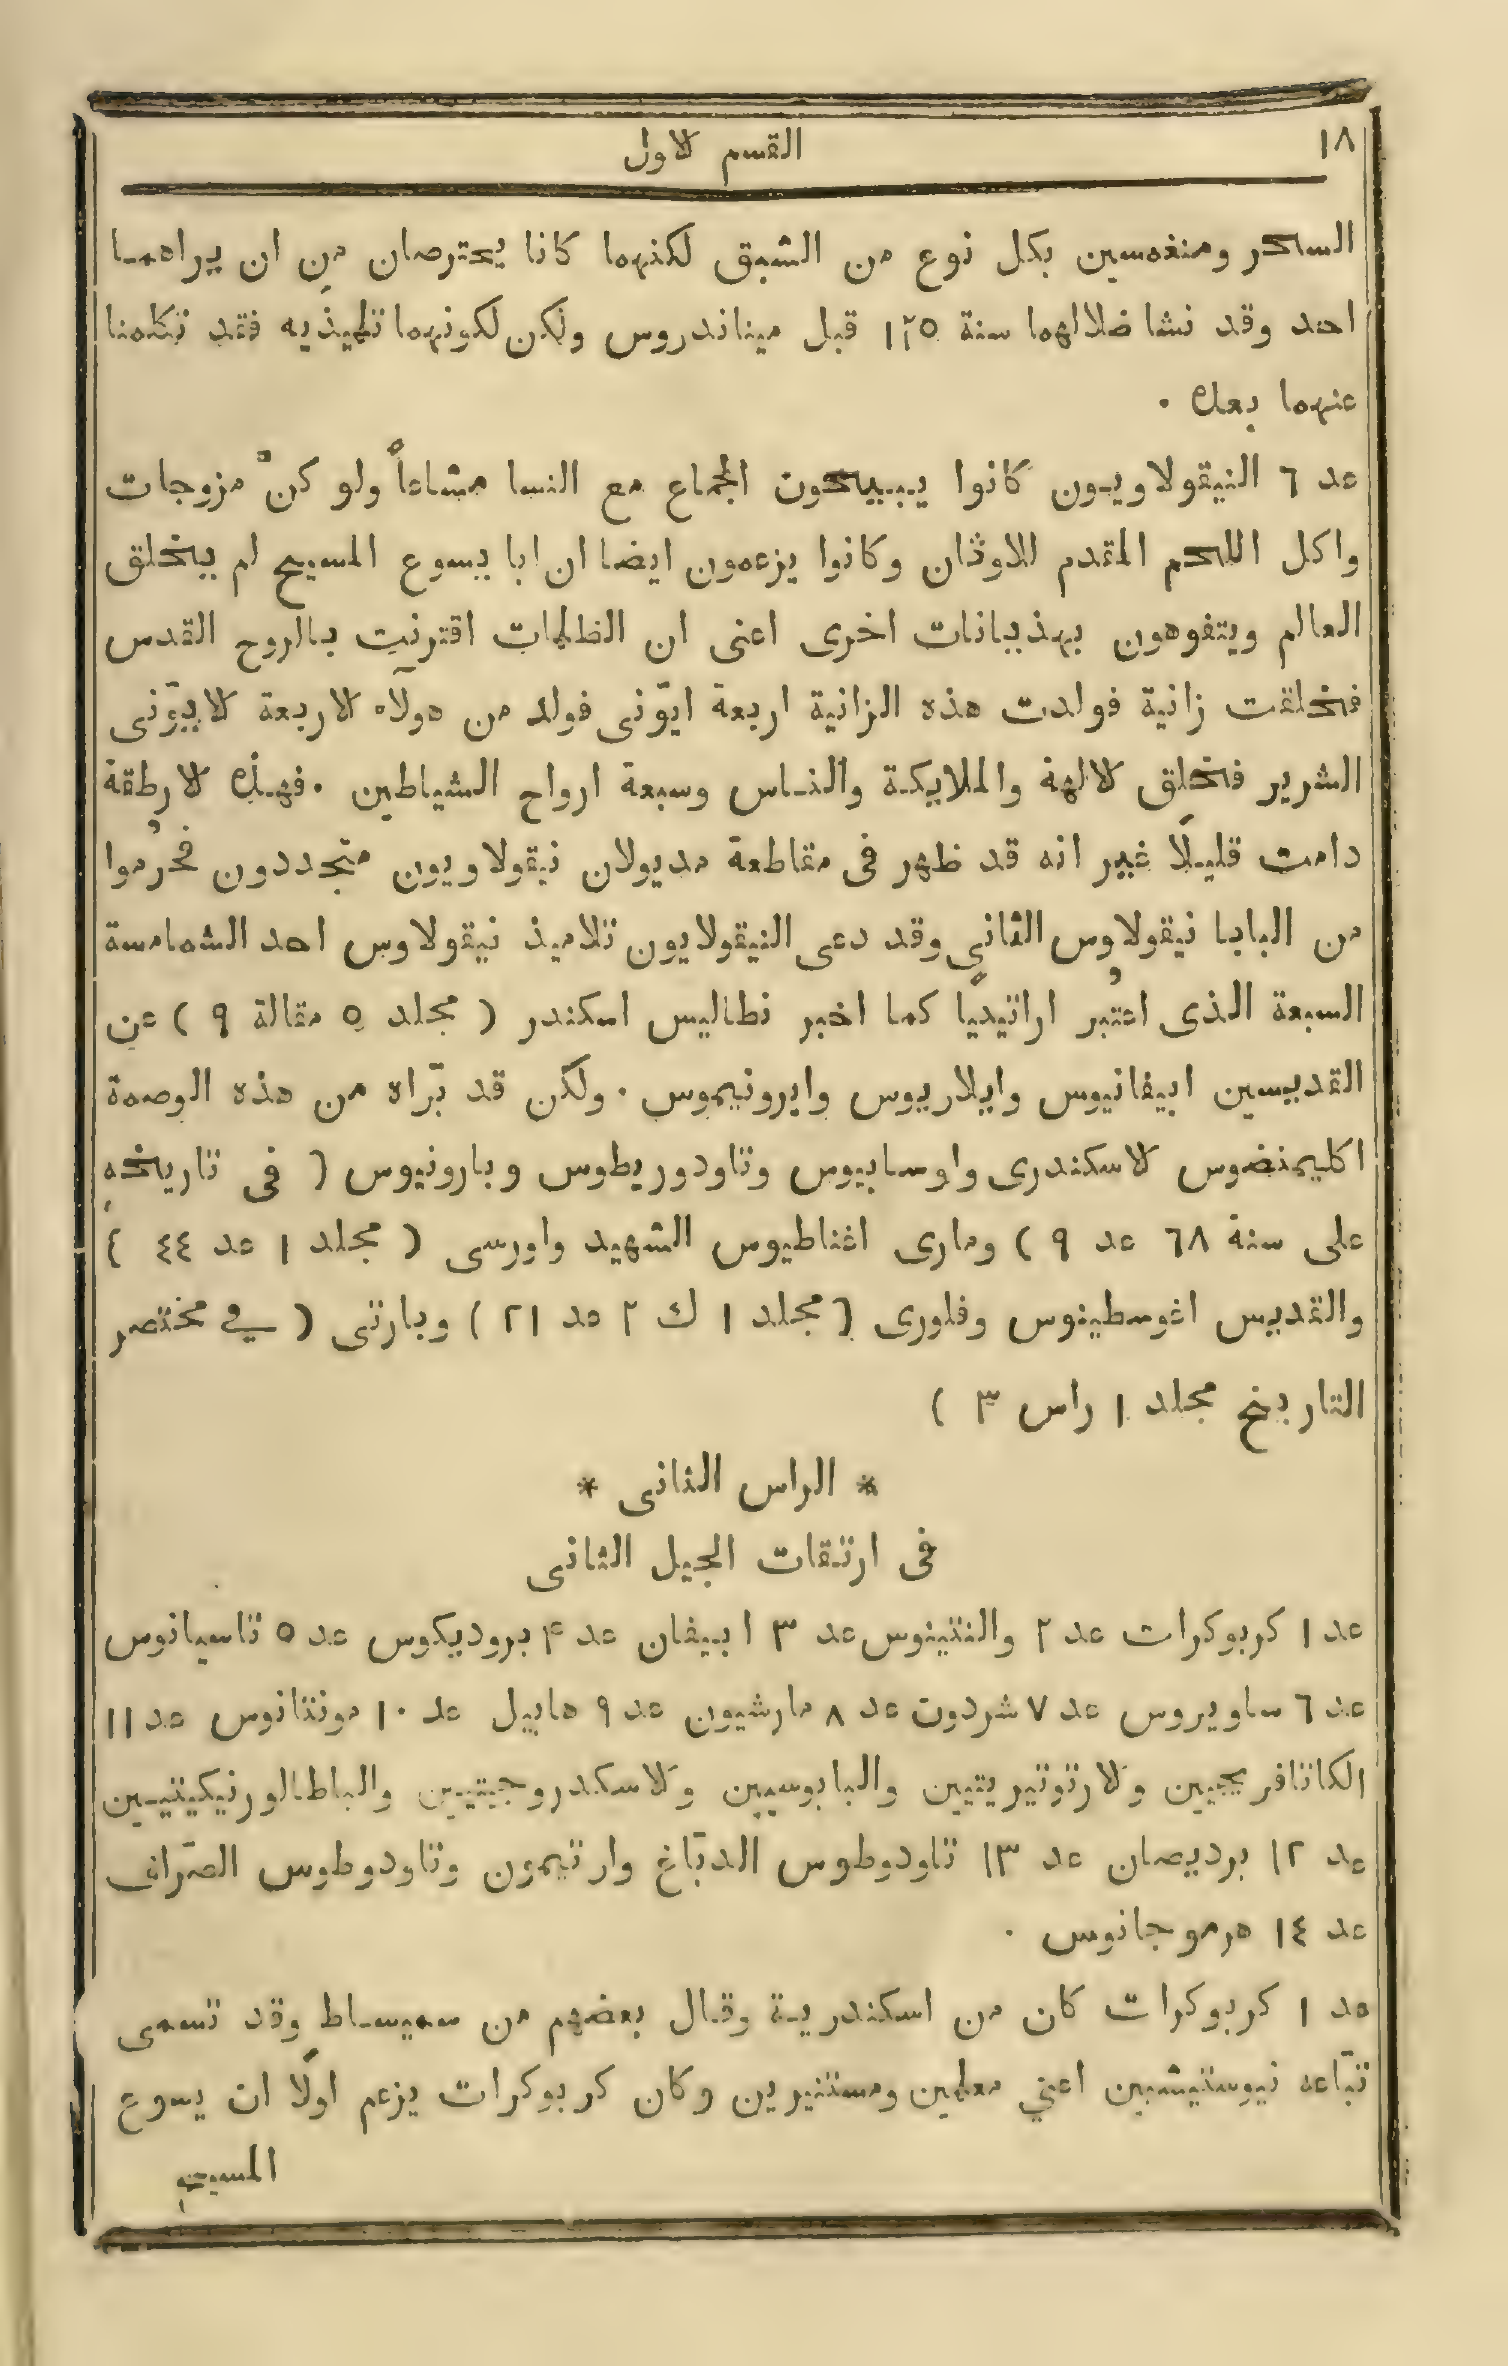 ١٨
القسم الاول
السحر ومنغمسين بكل نوع من الشبق لكنهما كانا يحترصان من ان يراهما
احد وقد نشا ضلالهما سنة ١٢٥ قبل ميناندروس ولكن لكونهما تلميذيه فقد تكلمنا
عنهما بعده ٠
عد ٦ النيقولاويون كانوا يبيحون الجماع مع النسا مشاعاً ولو كنّ مزوجات
واكل اللحم المقدم للاوثان وكانوا يزعمون ايضا ان ابا يسوع المسيح لم يخلق
العالم ويتفوهون بهذيانات اخرى اعنى ان الظلمات اقترنت بالروح القدس
فخلقت زانية فولدت هذه الزانية اربعة ايوّنى فولد من هولآء الاربعة الايوّنى
الشرير فخلق الالهة والملايكة والناس وسبعة ارواح الشياطين ٠ فهذه الارطقة
دامت قليلًا غير انه قد ظهر فى مقاطعة مديولان نيقولاويون متجددون فحُرموا
من البابا نيقولاوس الثاني وقد دعى النيقولايون تلاميذ نيقولاوس احد الشمامسة
السبعة الذى اعتُبر اراتيديًا كما اخبر نطاليس اسكندر ( مجلد ٥ مقالة ٩ ) عن
القديسين ابيفانيوس وايلاريوس وايرونيموس ٠ ولكن قد برّاه من هذه الوصمة
اكليمنضوس الاسكندرى واوسابيوس وتاودوريطوس وبارونيوس ( فى تاريخه
على سنة ٦٨ عد ٩ ) ومارى اغناطيوس الشهيد واورسى ( مجلد ١ عد ٤٤ )
والقديس اغوسطينوس وفلورى ( مجلد ١ ك ٢ عد ٢١ ) وبارتى ( في مختصر
التاريخ مجلد ١ راس ٣ )
* الراس الثانى *
فى ارتقات الجيل الثانى
عد ١ كربوكرات عد ٢ والنتينوس عد ٣ ابيفان عد ۴ بروديكوس عد ٥ تاسيانوس
عد ٦ ساويروس عد ٧ شردون عد ٨ مارشيون عد ٩ هابيل عد ١٠ مونتانوس عد ١١
الكاتافريجيين والارتوتيريتيين والبابوسيين والاسكدروجيتيين والباطالورنيكيتيين
عد ١٢ برديصان عد ١٣ تاودوطوس الدبّاغ وارتيمون وتاودوطوس الصرّاف
عد ١٤ هرموجانوس ٠
عد ١ كربوكرات كان من اسكندرية وقال بعضهم من سميساط وقد تسمى
تبّاعه نيوستيشيين اعني معلمين ومستنيرين وكان كربوكرات يزعم اولًا ان يسوع
المسيح